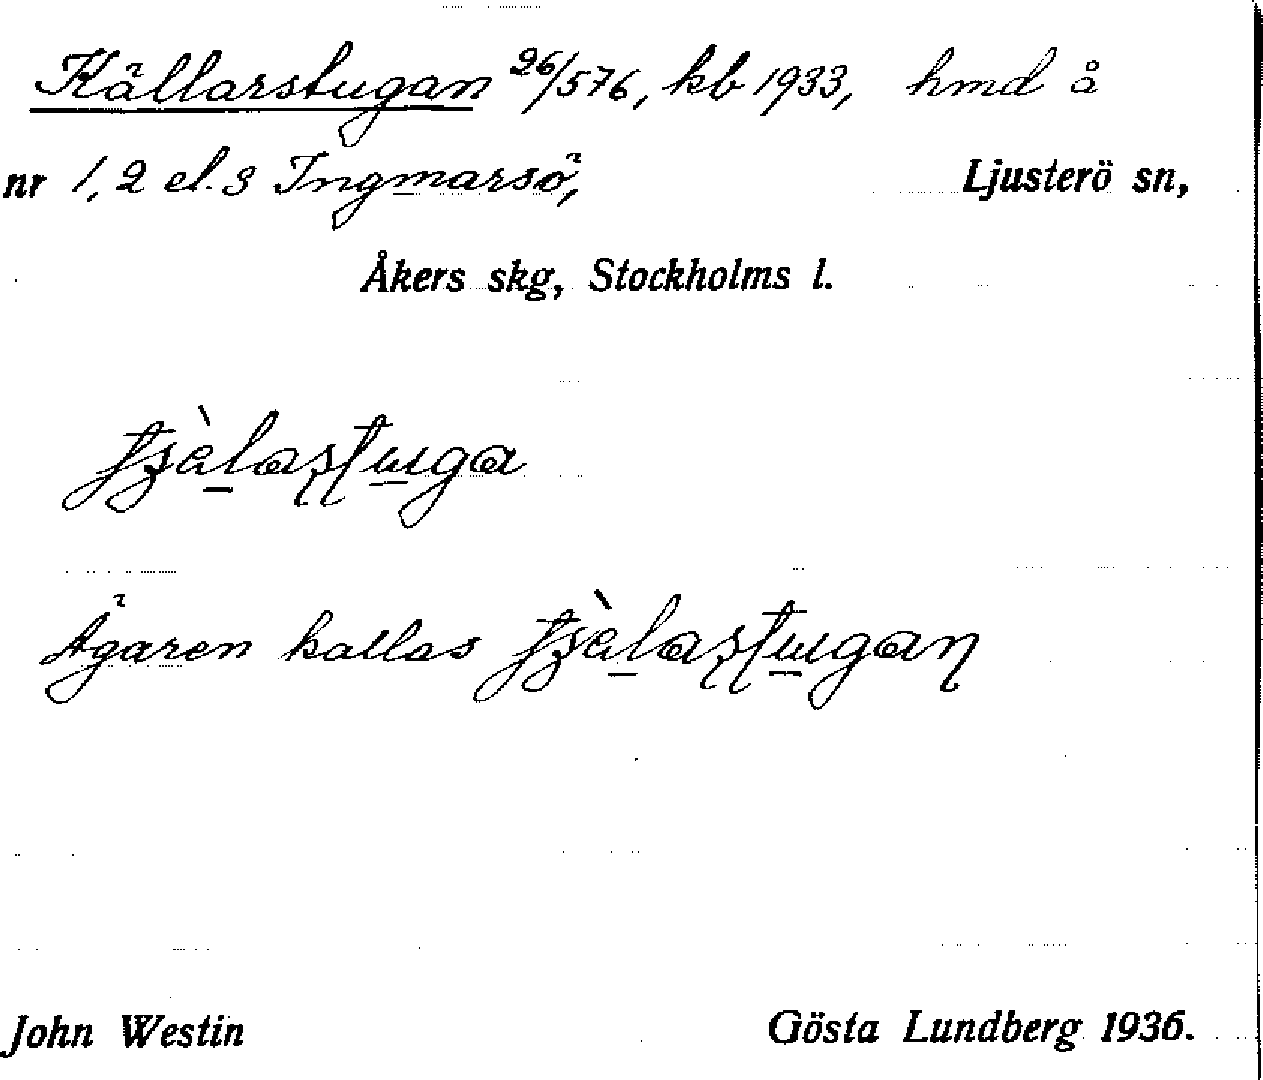 Källarstugan 26/576, kb 1933, hmd å
nr 1, 2 el. 3 Ingmarsö, Ljusterö sn,
Åkers skg, Stockholms l.
Ägaren kallas
John Westin Gösta Lundberg 1936.